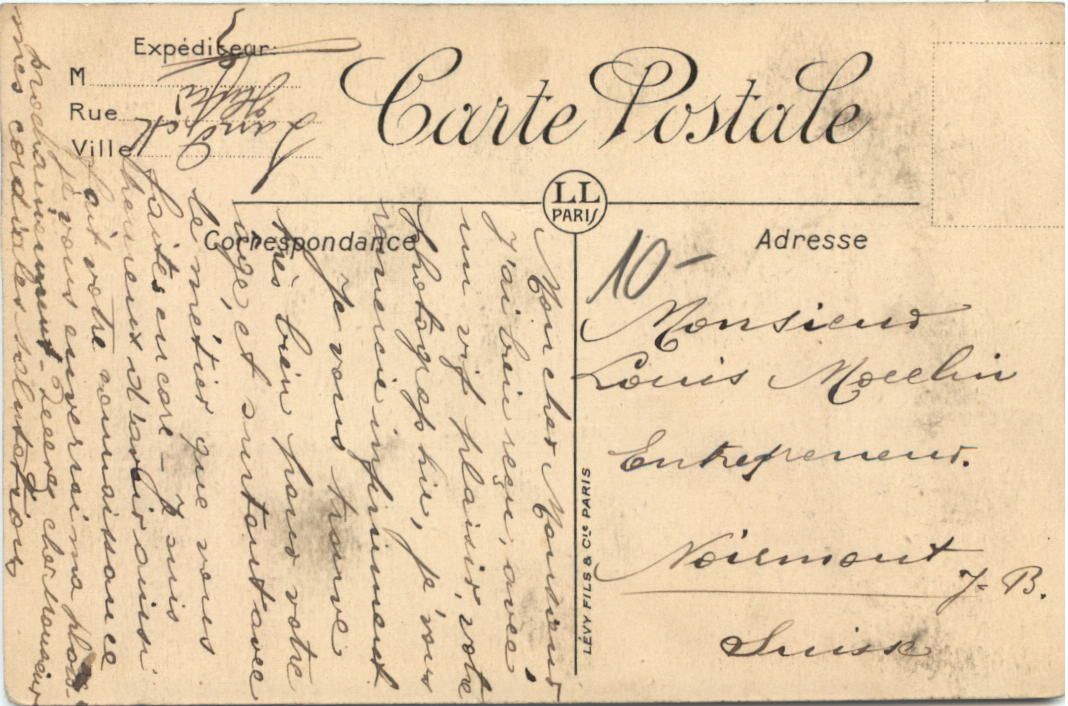 Expéditeur:
M
Rue
Ville
Carte Postale
LL
PARIS
Correspondance
Adresse
LÉVY FILS & Cie PARIS
10-
Monsieur
Louis Mocelin
Entrepreneur.
Noirmont
J-B.
Suisse
Mon cher Monsieur
J'ai bien reçu, avec
un vif plaisir, votre
photographie, je vous
remercie infiniment
Je vous trouve
très bien pour votre
age, et surtout avec
le métier que vous
faites encore - Je suis
heureux d'avoir ainsi
fait votre connaissance
je vous enverrai ma photo
prochainement - Recevez cher Monsieur
mes cordiales salutations